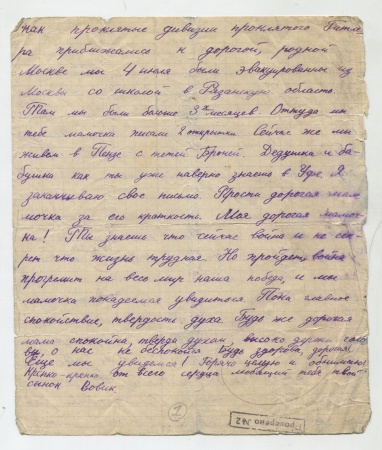 как проклятые дивизии проклятого Гитле
ра приближались к дорогой, родной
Москве мы 4 июля были эвакуированны из
Москвы со школой в Рязанскую область.
Там мы были больше 3х месяцев. Оттуда мы
тебе мамочка писали 2 открытки. Сейчас же мы
живем в Пензе с тетей Броней. Дедушка и ба-
бушка как ты уже наверно знаешь в Уфе. Я
заканчиваю свое письмо. Прости дорогая мам
мочка за его краткость. Моя дорогая мамоч-
ка! Ты знаешь что сейчас война и не сек-
рет что жизнь трудная. Но пройдет война
прогремит на весь мир наша победа, и мы
мамочка понадеемся увидиться. Пока главное
спокойствие, твердость духа. Будь же дорогая
мама спокойна, тверда духом, высоко держи голо
ву, о нас не беспокойся. Будь здорова, дорогая!
Еще мы увидимся! Горячо целую и обнимаю
Крепко-крепко от всего сердца любящий тебя твой
сынок Вовик.
1
Проверено №2